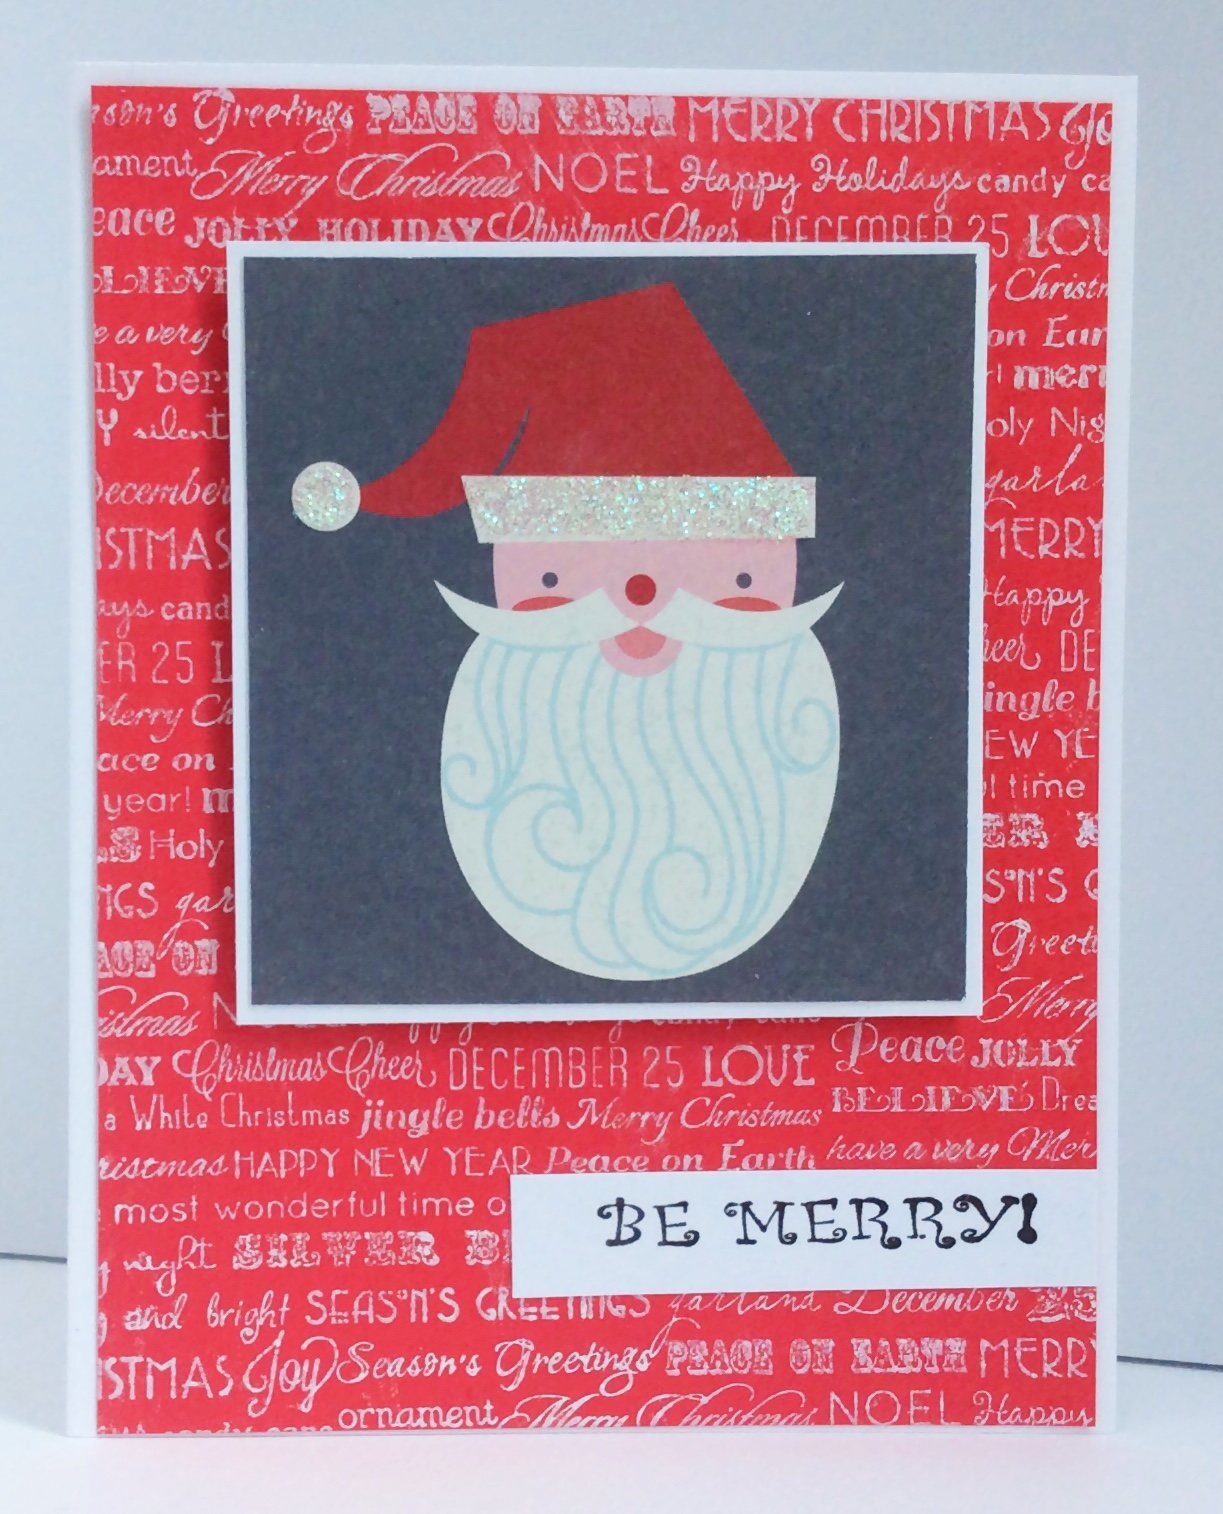 ason's Greetings PEACE ON EARTH MERRY CHRISTMAS Jo
ament Merry Christmas NOEL Happy Holidays candy ca
eace JOLLY HOLIDAY Christmas Cheer DECEMBER 25 LOV
ELIEVE y Christm
e a very on Ear
lly berr merr
Y silent oly Nig
December garla
ISTMAS MERRY
ays cand Happy
ER 25 L heer DE
Merry Ch ingle b
ace on EW YE
year! m l time
LS Holy ER B
NGS gar S'N'S G
ACE ON Greeti
istmas N Merry
Peace JOLLY
DAY Christmas Cheer DECEMBER 25 LOVE
BELIEVE Drea
a White Christmas jingle bells Merry Christmas
have a very Mer
ristmas HAPPY NEW YEAR Peace on Earth
most wonderful time o
BE MERRY!
night SILVER B
and bright SEASON'S GREETINGS garland December 25
ISTMAS Joy Season's Greetings PEACE ON EARTH MERRY
ornament Merry Christmas NOEL Happy